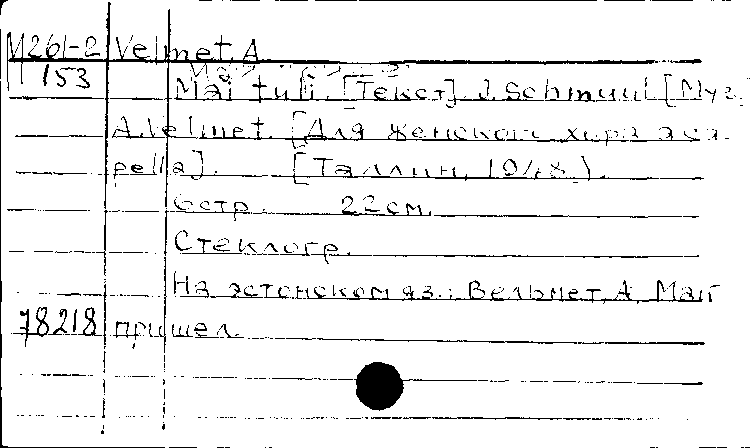 М261-2 Velmet, A.
153 Mai tuli. [Текст] J. Schmuul [Муз.]
A. Velmet. [Для женского хора a ca-
pella]. [Таллин, 1948).
6 стр. 22 см.
Стеклогр.
На эстонском яз.: Вельмет, А. Май
78218 пришел.